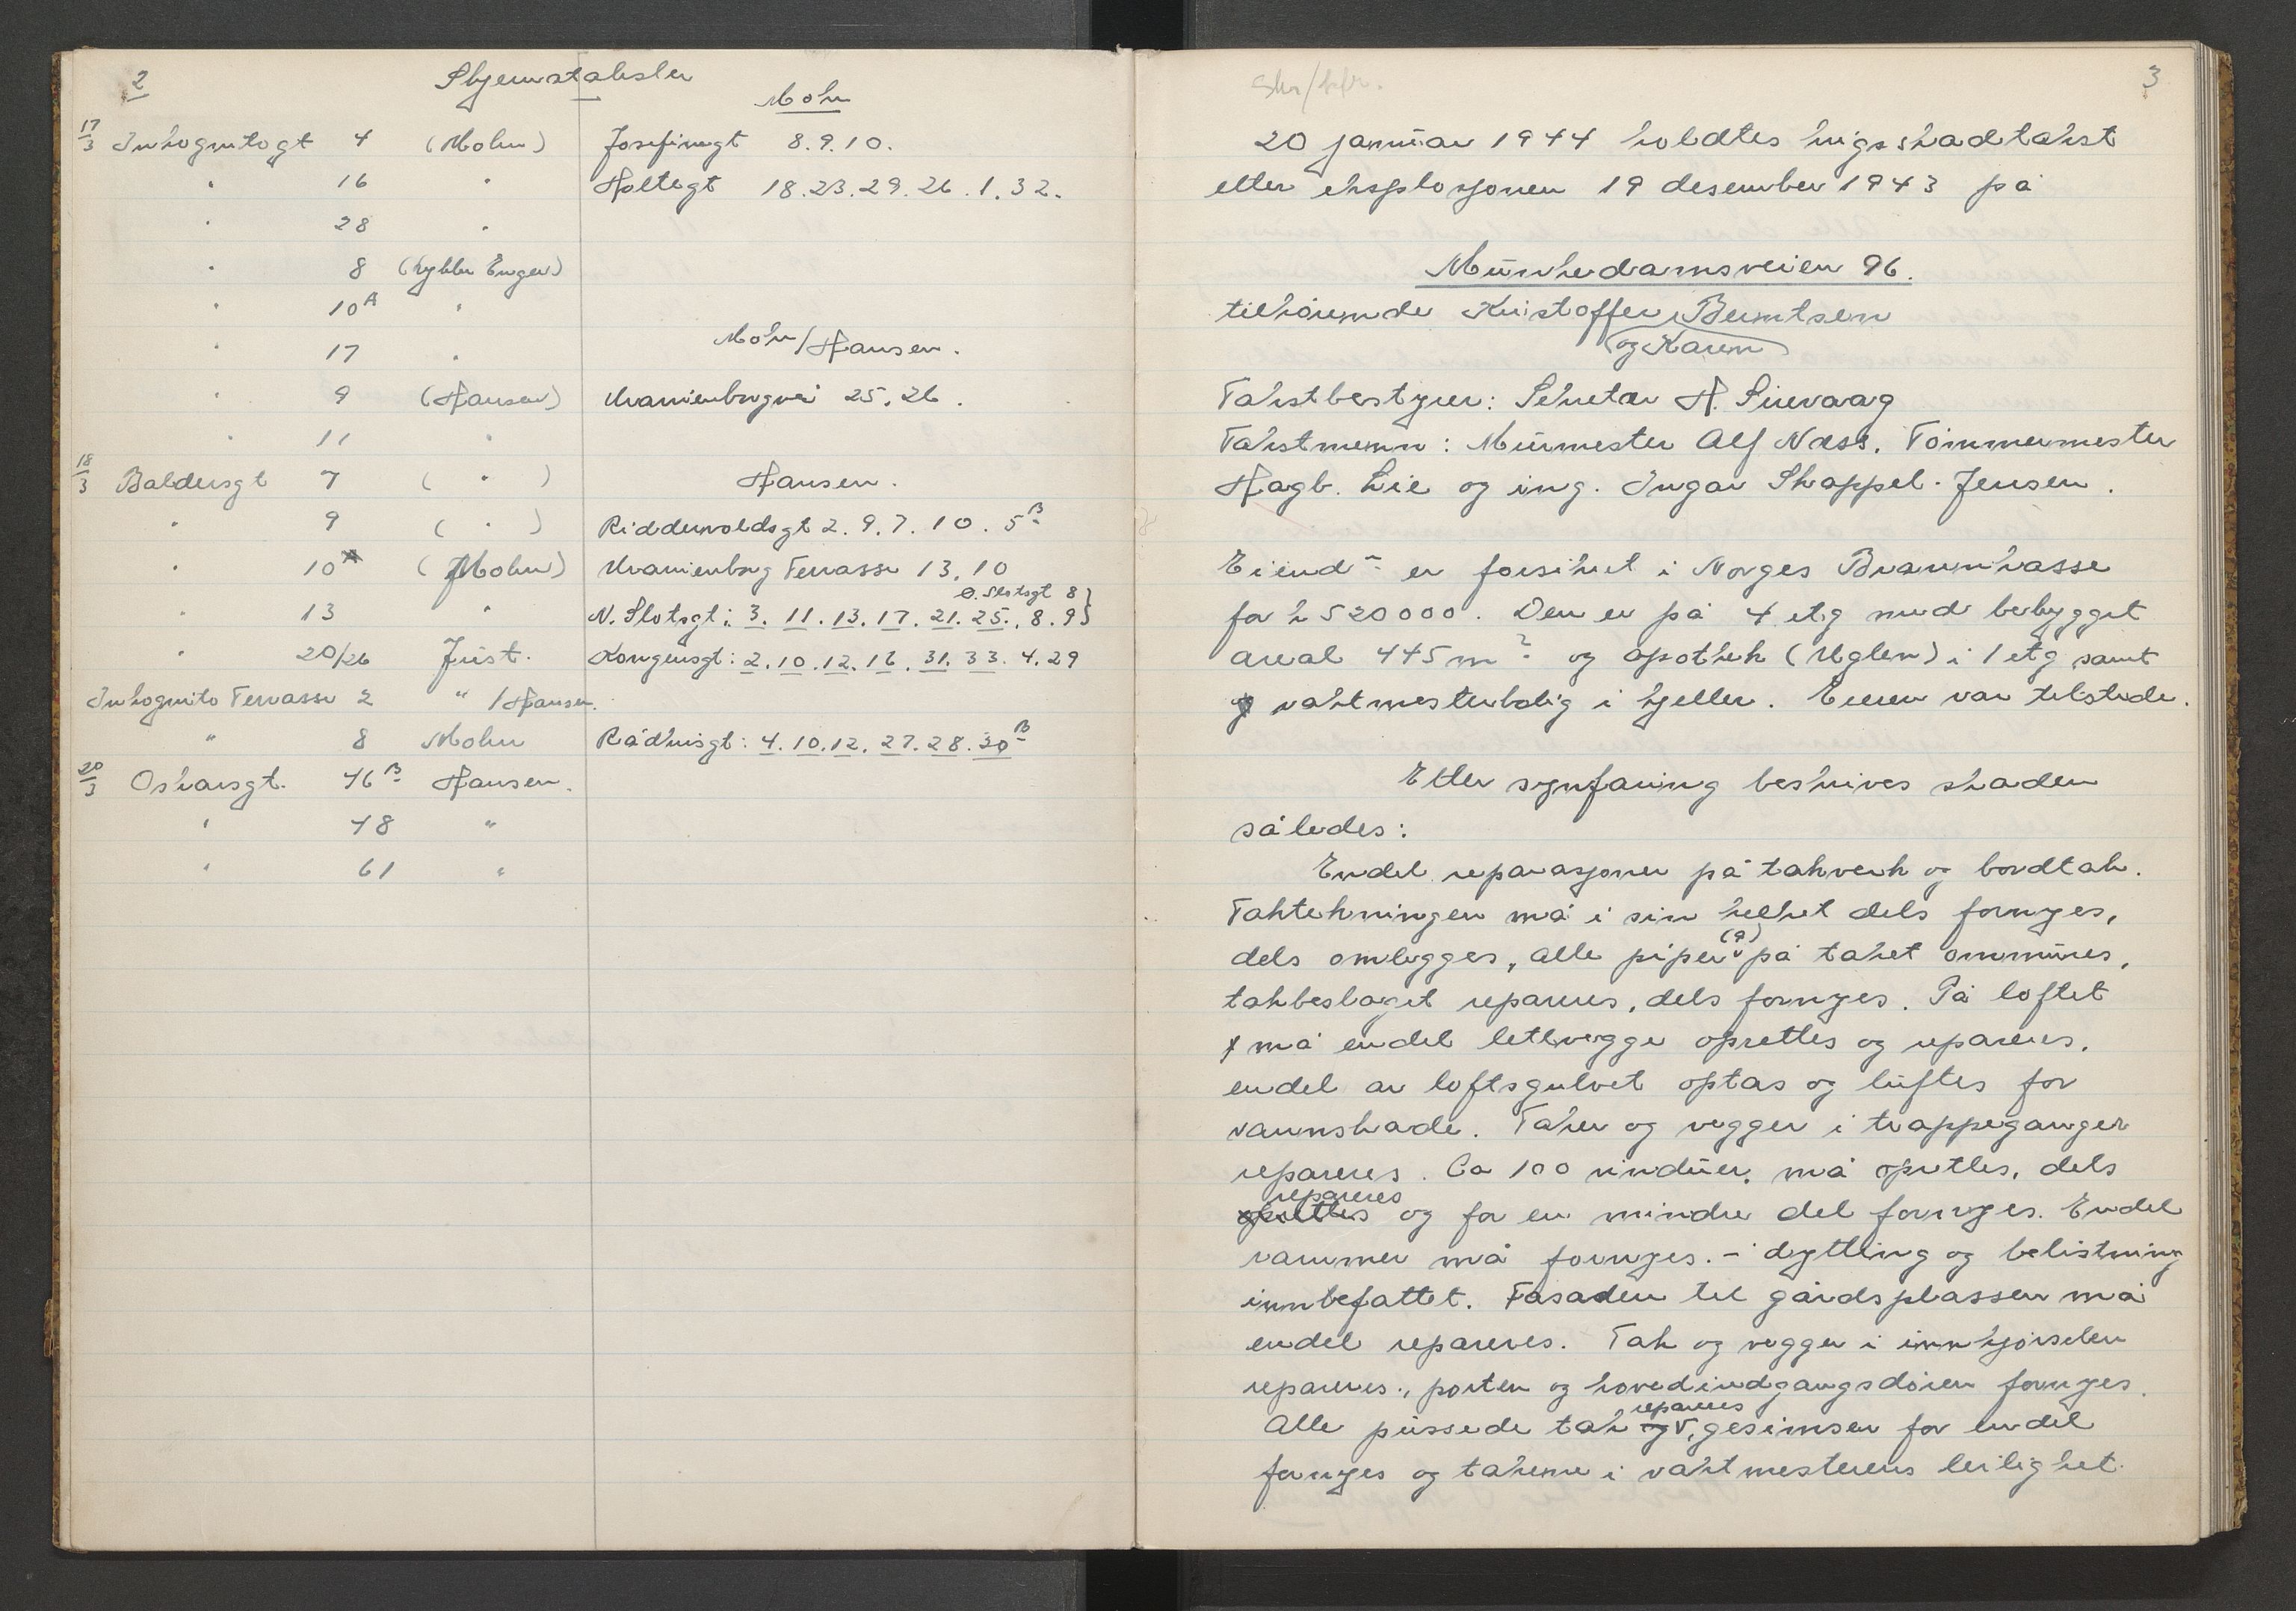 2
Skjematakster
Mohn
17/3 Inkognitogt 4 (Mohn) Josefinegt 8.9.10.
" 16 " Holtegt 18.23.29.26.1.32.
" 28 "
" 8 (Lykke Enger)
" 10A "
Mohn/Hansen.
" 17 "
" 9 (Hansen) Uranienborgvei 25.26.
" 11 "
18/3 Baldersgt 7 ( " ) Hansen.
" 9 ( " ) Riddervoldsgt 2.9.7.10.5B
" 10 (Mohn) Uranienborg Terrasse 13.10
Ø. Slotsgt 8}
" 13 " N. Slotsgt: 3.11.13.17.21.25.,8.9}
" 20/26 Just. Kongensgt: 2.10.12.16.31.33.4.29
Inkognito Terrasse 2 " /Hansen.
" 8 Mohn Rådhusgt: 4.10.12.27.28.30B
20/3 Oskarsgt. 46B Hansen.
" 48 "
" 61 "
3
20 januar 1944 holdtes krigsskadtakst
etter eksplosjonen 19 desember 1943 på
Munkedamsveien 96.
tilhørende Kristoffer Berntsen
og Karen
Takstbestyrer: Sekretær H. Sirevaag
Takstmenn: Murmester Alf Næss. Tømmermester
Hagb. Lie og ing. Ingar Skappel-Jensen.
Eiendn er forsikret i Norges Brannkasse
for k 520000. Den er på 4 etg med bebygget
areal 445 m2 og apothek (Uglen) i 1 etg samt
vaktmesterbolig i kjeller. Eieren var tilstede.
Etter synfaring beskrives skaden
således:
Endel reparasjoner på takverk og bordtak.
Taktekningen må i sin helhet dels fornyes,
dels omlegges, alle piper (9) på taket ommures,
takbeslaget repareres, dels fornyes. På loftet
må endel lettvegger oprettes og repareres,
endel av loftsgulvet optas og luftes for
vannskade. Taker og vegger i trappeganger
repareres. Ca 100 vinduer, må oprettes, dels
repareres
oprettes og for en mindre del fornyes. Endel
rammer må fornyes. - dytting og belistning
innbefattet. Fasaden til gårdsplassen må
endel repareres. Tak og vegger i innkjørselen
repareres., porten og hovedindgangsdøren fornyes.
repareres
Alle pussede tak og, gesimsen for endel
fornyes og takene i vaktmesterens leilighet.